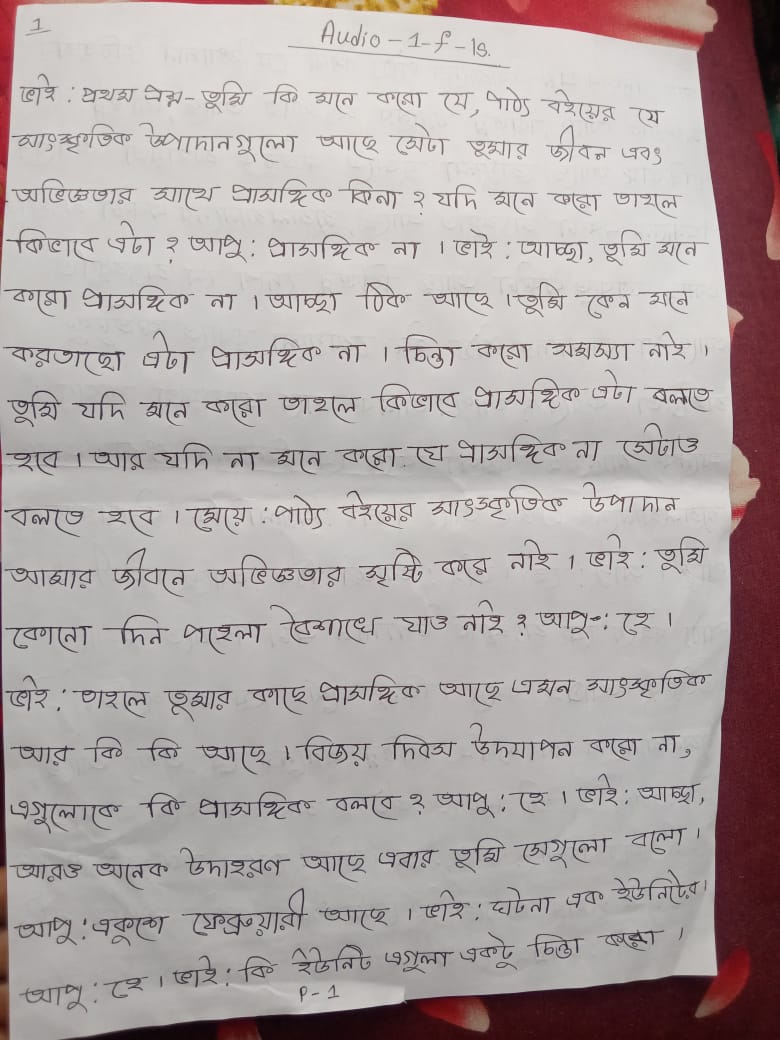 1
Audio-1-f-1s.
ভাই : প্রথম প্রশ্ন - তুমি কি মনে করো যে, পাঠ্য বইয়ের যে
সাংস্কৃতিক উপাদানগুলো আছে সেটা তুমার জীবন এবং
অভিজ্ঞতার সাথে প্রাসঙ্গিক কিনা ? যদি মনে করো তাহলে
কিভাবে এটা ? আপু : প্রাসঙ্গিক না । ভাই : আচ্ছা, তুমি মনে
করো প্রাসঙ্গিক না । আচ্ছা ঠিক আছে । তুমি কেন মনে
করতাছো এটা প্রাসঙ্গিক না । চিন্তা করো সমস্যা নাই ।
তুমি যদি মনে করো তাহলে কিভাবে প্রাসঙ্গিক এটা বলতে
হবে । আর যদি না মনে করো যে প্রাসঙ্গিক না সেটাও
বলতে হবে । মেয়ে : পাঠ্য বইয়ের সাংস্কৃতিক উপাদান
আমার জীবনে অভিজ্ঞতার সৃষ্টি করে নাই । ভাই : তুমি
কোনো দিন পহেলা বৈশাখে যাও নাই ? আপু : হে ।
ভাই : তাহলে তুমার কাছে প্রাসঙ্গিক আছে এমন সাংস্কৃতিক
আর কি কি আছে । বিজয় দিবস উদযাপন করো না,
এগুলোকে কি প্রাসঙ্গিক বলবে ? আপু : হে । ভাই : আচ্ছা,
আরও অনেক উদাহরণ আছে এবার তুমি সেগুলো বলো ।
আপু : একুশে ফেব্রুয়ারী আছে । ভাই : ঘটনা এক ইউনিটের ।
আপু : হে । ভাই : কি ইউনিট এগুলা একটু চিন্তা করো ।
P-1